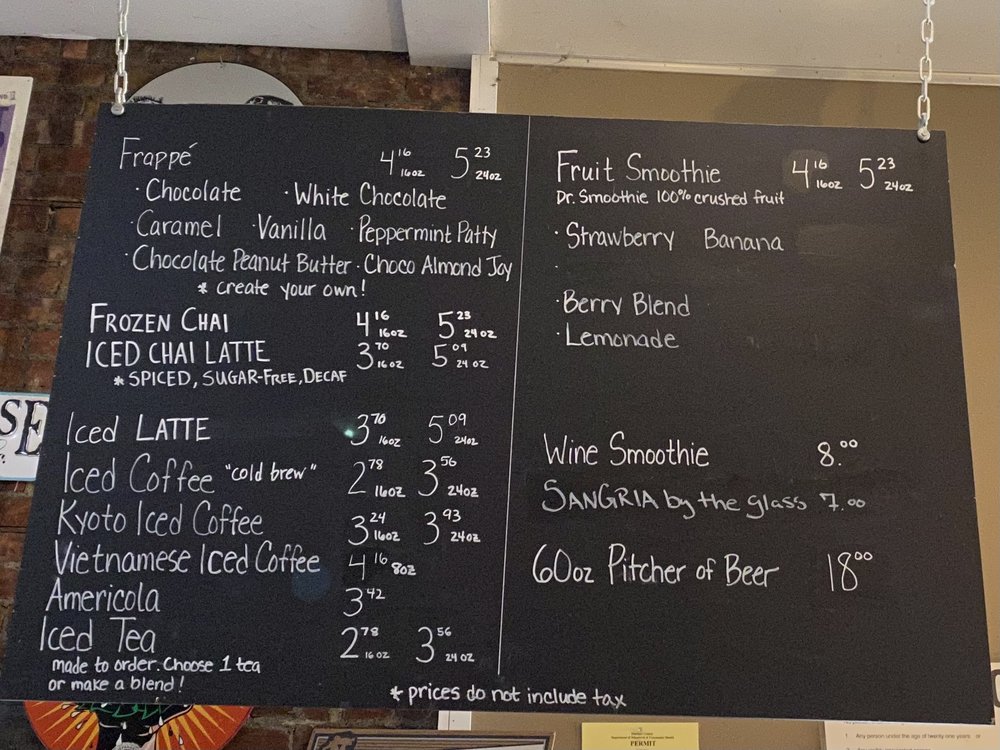 Frappé 4 16 16oz 5 23 24oz
· Chocolate · White Chocolate
· Caramel · Vanilla · Peppermint Patty
· Chocolate Peanut Butter · Choco Almond Joy
* create your own!
FROZEN CHAI 4 16 16oz 5 23 24oz
ICED CHAI LATTE 3 70 16oz 5 09 24oz
* SPICED, SUGAR-FREE, DECAF
Iced LATTE 3 70 16oz 5 09 24oz
Iced Coffee "cold brew" 2 78 16oz 3 56 24oz
Kyoto Iced Coffee 3 24 16oz 3 93 24oz
Vietnamese Iced Coffee 4 16 8oz
Americola 3 42
Iced Tea 2 78 16oz 3 56 24oz
made to order. Choose 1 tea
or make a blend!
Fruit Smoothie 4 16 16oz 5 23 24oz
Dr. Smoothie 100% crushed fruit
· Strawberry Banana
· Berry Blend
· Lemonade
Wine Smoothie 8.00
SANGRIA by the glass 7.00
60oz Pitcher of Beer 18 00
* prices do not include tax
SE
PERMIT
1. Any person under the age of twenty one years or